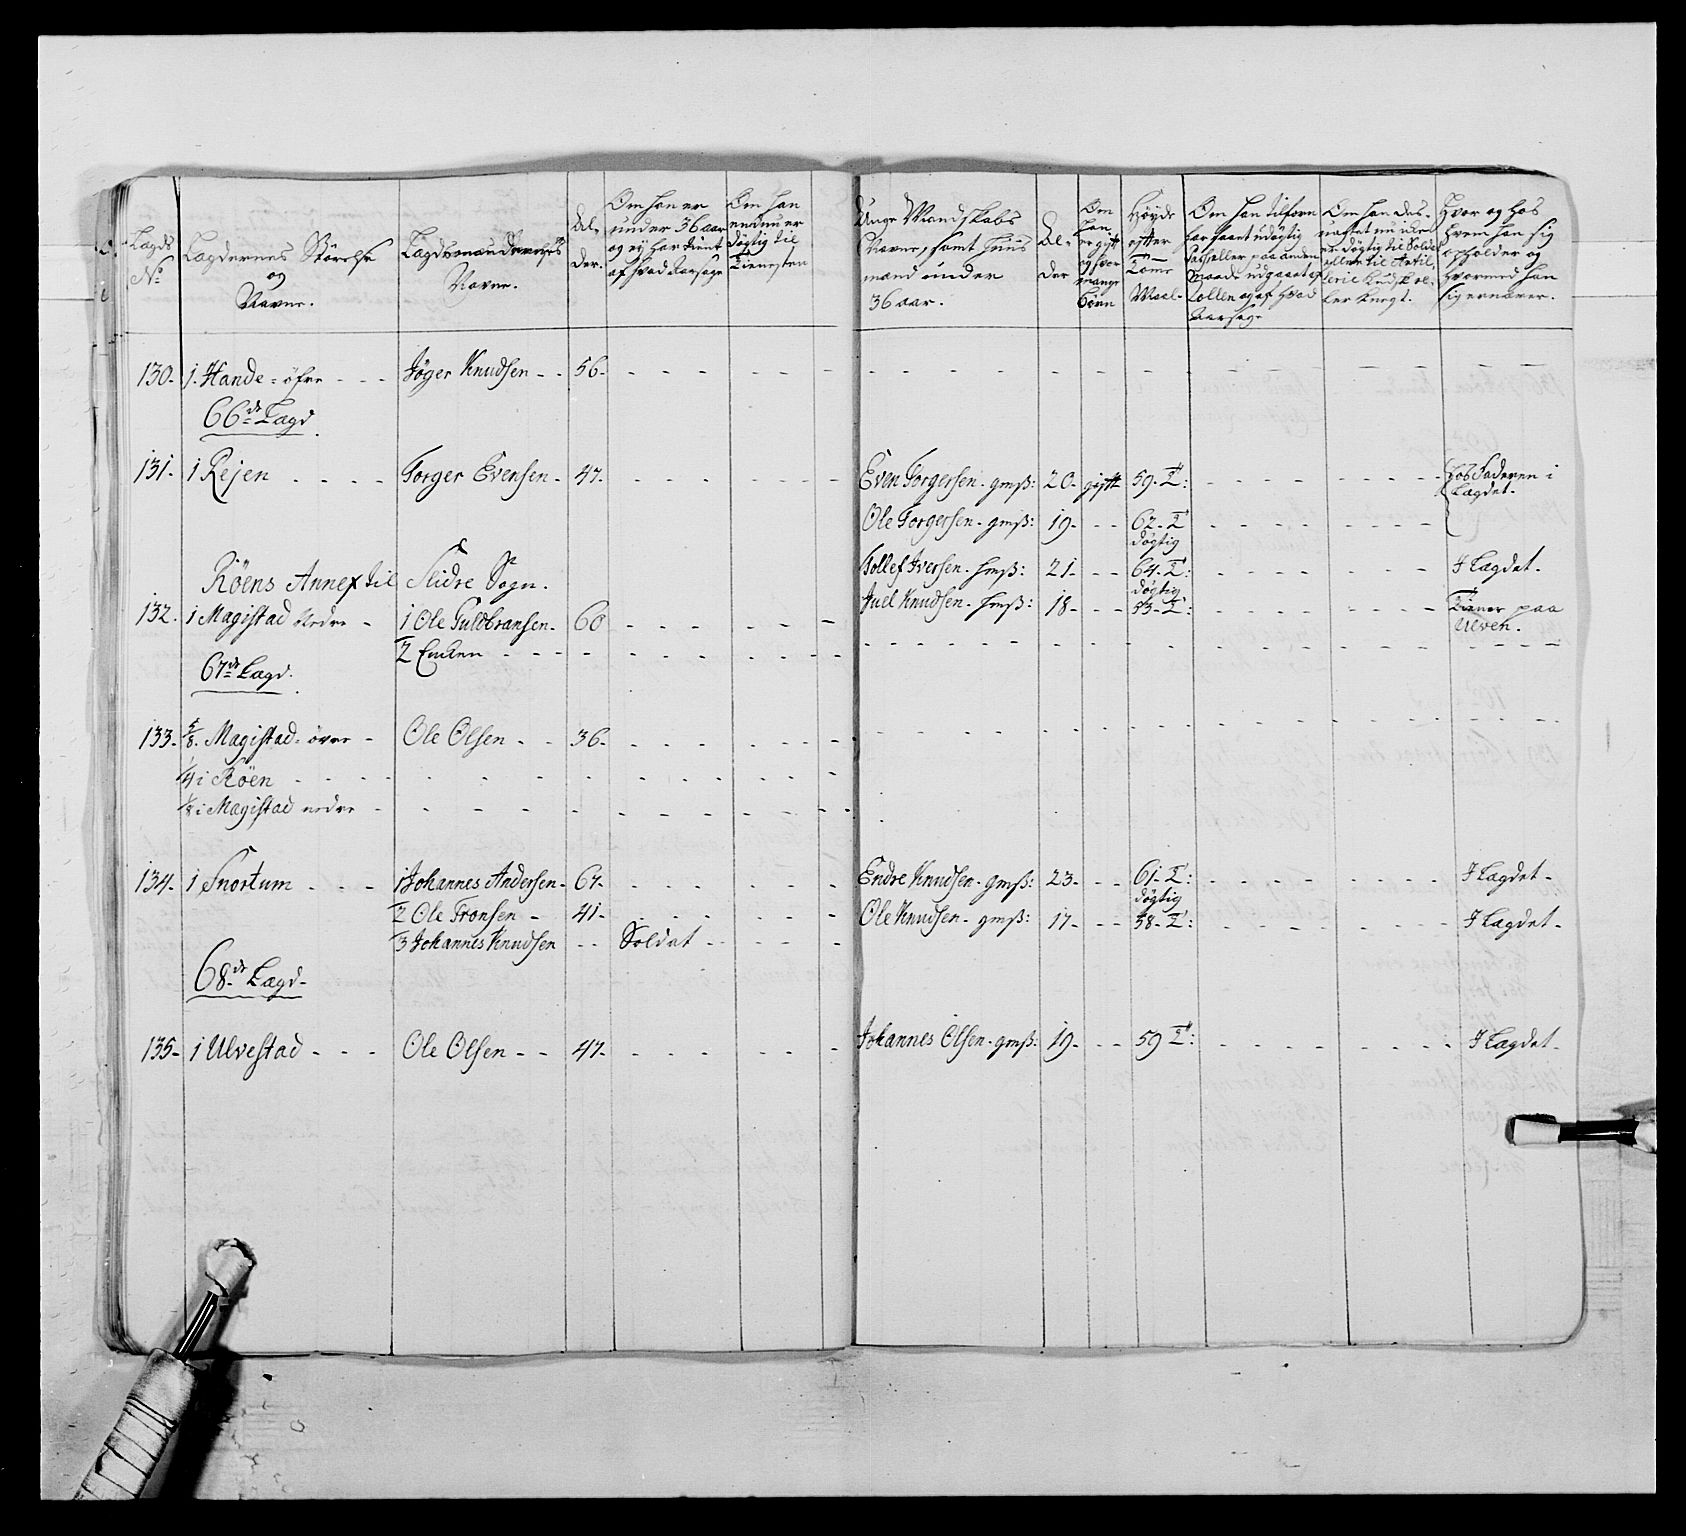 Lægds
No
Lægdernes Störelse
og
Navne.
Lægdsmændernes
Navne.
Al-
der.
Om han er
under 36 aar
og ej har tiänt
af hvad Aarsage
Om han
endnu er
døgtig til
Tienesten
Unge Mandskabs
Navne, samt Huus
mænd under
36 aar.
Al-
der
Om
han
er gift
og hvor
mange
børn
Høyde
efter
Tome
Maal.
Om han tilforn
har været udøgtig
Maade udgaaet af
Rollen og af hvad
Aarsag.
Om han Des-
er døgtig til Soldat
eller til Artil,
lerie
ler knegt.
Hvor og hos
hvem han sig
opholder og
hvormed han
sig ernærer.
130. 1. Hande - öfre - - - Jøger Knudsen - - 56.
66de Lægd
131. 1 Rejen . . . . Torger Evensen - 47. Even Torgersen. gmss: 20. gift 59. T: hos Faderen i
Lægdet.
Ole Torgersen. gmss: 19. - - 62. T
døgtig
Röens Annex til Slidre Sogn. Tollef Iversen. hmss: 21. - - 64. T: I Lægdet.
døgtig
132. 1 Magistad Nedre - 1 Ole Guldbransen. 60 Juel Knudsen. hmss: 18. - - 53. T: Tiener paa
Ulven.
2 Enken - - -
67de Lægd.
133. 5/8. Magistad. övre - Ole Olsen - - 36.
1/4 i Röen - - -
1/8 i Magistad nedre -
134. 1 Snortum - - - 1 Johannes Andersen. 67. Endre Knudsen. gmss: 23. - - 61. T: I Lægdet.
døgtig
2 Ole Tronsen - 41. Ole Knudsen. gmss: 17. - - 58. T: I Lægdet.
3 Johannes Knudsen - - Soldat
68de Lægd.
135. 1 Ulvestad - - - Ole Olsen - - 47. Johannes Olsen. gmss: 19. - - 59 T: I Lægdet.